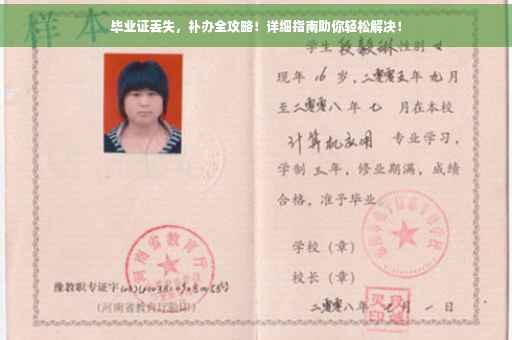 毕业证丢失，补办全攻略！详细指南助你轻松解决！
样本
学生段毅琳性别女
现年16岁，二零零五年九月
至二零零八年七月在本校
计算机应用 专业学习，
学制三年，修业期满，成绩
合格，准予毕业。
学校（章）
校长（章）
二零零八年七月一日
河南省教育厅
豫教职专证字
（河南省教育厅验印）